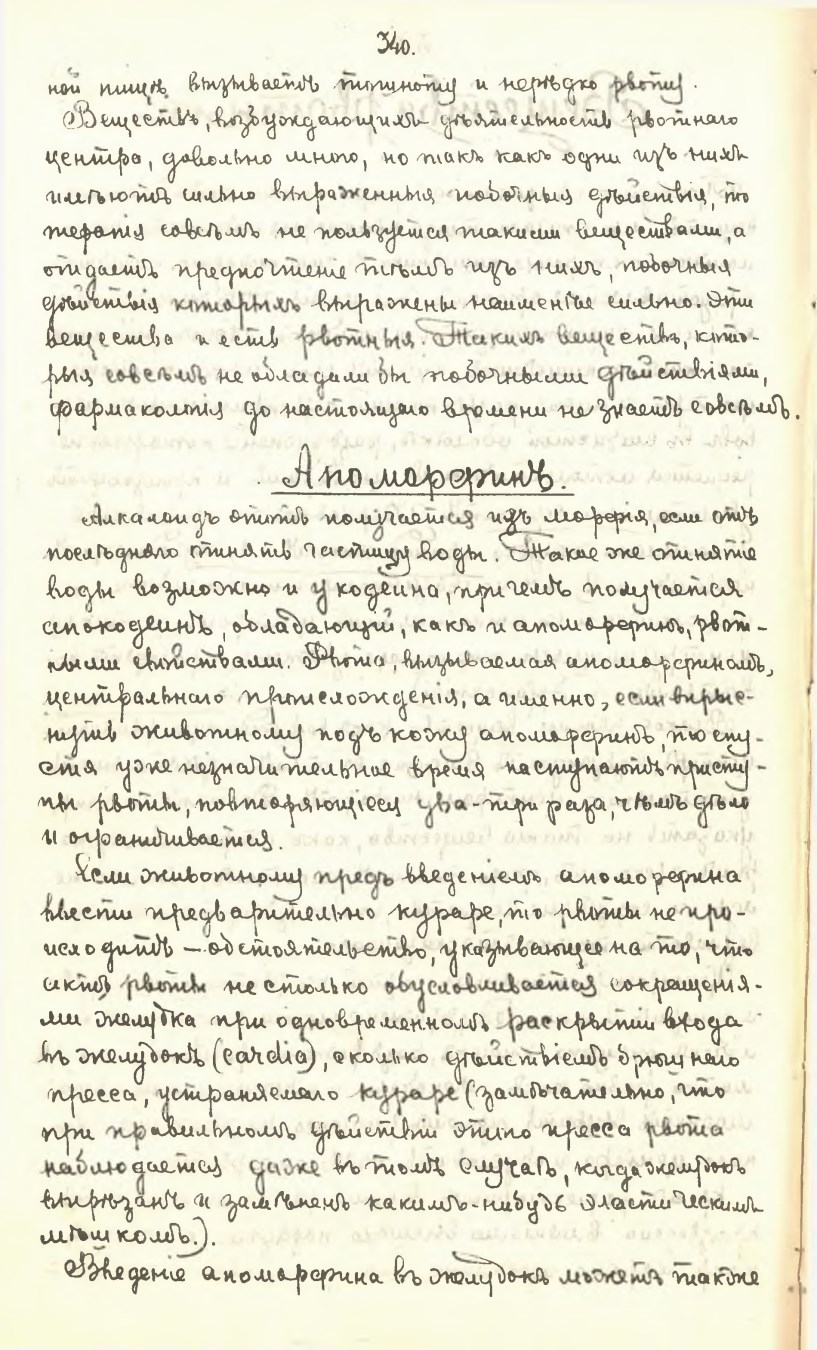 340.
ной пищѣ вызываетъ тошноту и нерѣдко рвоту.
Веществъ, возбуждающихъ дѣятельность рвотнаго
центра, довольно много, но такъ какъ одни изъ нихъ
имѣютъ сильно выраженныя побочныя дѣйствія, то
терапія совсѣмъ не пользуется такими веществами, а
отдаетъ предпочтеніе тѣмъ изъ нихъ, побочныя
дѣйствія которыхъ выражены наименѣе сильно. Эти
вещества и есть рвотныя. Такихъ веществъ, кото-
рыя совсѣмъ не обладали бы побочными дѣйствіями,
фармакологія до настоящаго времени не знаетъ совсѣмъ.
Апоморфинъ.
Алкалоидъ этотъ получается изъ морфія, если отъ
послѣдняго отнять частицу воды. Такое же отнятіе
воды возможно и у кодеина, причемъ получается
апокодеинъ, обладающій, какъ и апоморфинъ, рвот-
ными свойствами. Рвота, вызываемая апоморфиномъ,
центральнаго происхожденія, а именно, если впрыс-
нуть животному подъ кожу апоморфинъ, то спу-
стя уже незначительное время наступаютъ присту-
пы рвоты, повторяющіеся два-три раза, чѣмъ дѣло
и ограничивается.
Если животному предъ введеніемъ апоморфина
ввести предварительно кураре, то рвоты не про-
исходитъ — обстоятельство, указывающее на то, что
актъ рвоты не столько обусловливается сокращенія-
ми желудка при одновременномъ раскрытіи входа
въ желудокъ (cardia), сколько дѣйствіемъ брюшнаго
пресса, устраняемаго кураре (замѣчательно, что
при правильномъ дѣйствіи этого пресса рвота
наблюдается даже въ томъ случаѣ, когда желудокъ
вырѣзанъ и замѣненъ какимъ-нибудь эластическимъ
мѣшкомъ.).
Введеніе апоморфина въ желудокъ можетъ также